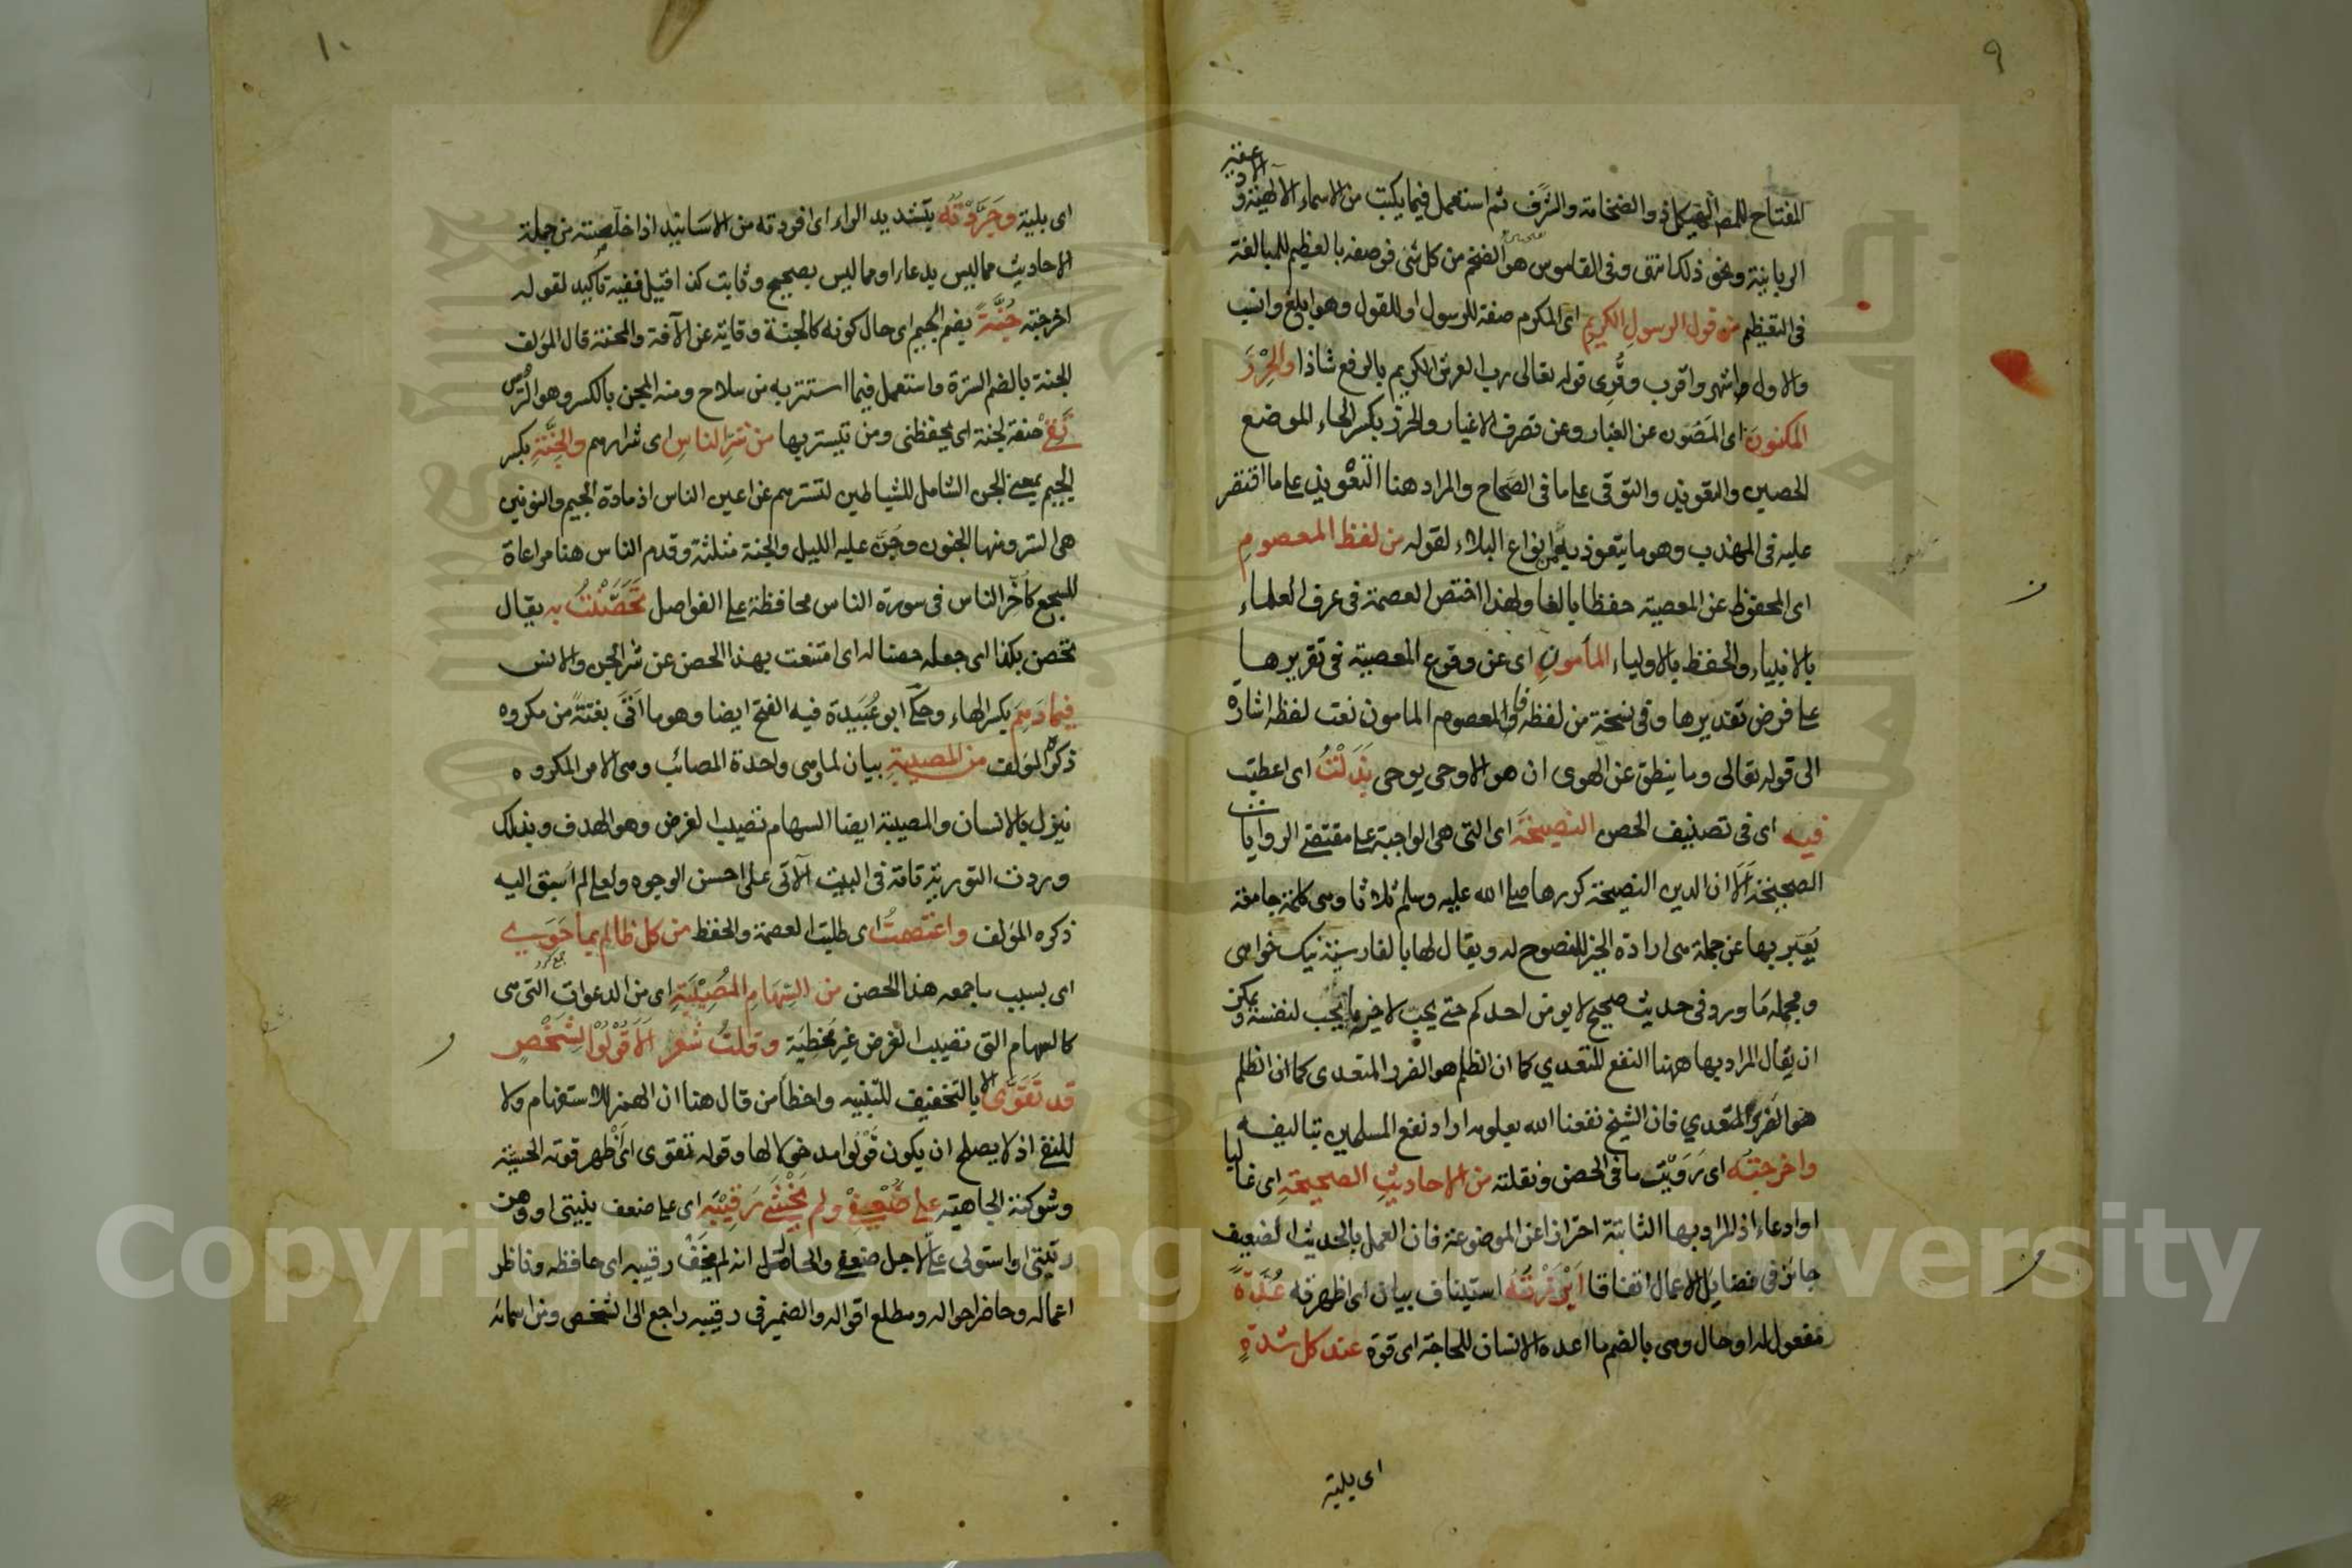 ٩
للمفتاح للمص الهيكل في والضخامة والشرف ثم استعمل فيما يكتب من الاسماء الالهية والادعية
الربانية ونحو ذلك انتهى وفي القاموس هو الضخم من كل شئ فوصفه بالعظيم للمبالغة
في التعظيم من قول الرسول الكريم اى المكرم صفة للرسول او للقول وهو ابلغ وانسب
والاول اشهر واقرب وقُرِى قوله تعالى رب العرش الكريم بالرفع شاذا والحِرْزَ
المكنونَ اى المَصُون عن الغبار وعن تصرف الاغيار والحرز بكسر الحاء الموضع
الحصين والتعويذ والتوقى على ما فى الصحاح والمراد هنا التعْويذ على ما اقتصر
عليه فى المهذب وهو ما يتعوذ به من انواع البلاء لقوله من لفظ المعصومِ
اى المحفوظ عن المعصية حفظا بالغا ولهذا اختص العصمة فى عرف العلماء
بالانبياء والحفظ بالاولياء المأمونِ اى عن وقوع المعصية فى تقريرها
على فرض تقديرها وفى نسخة من لفظه والمعصوم المامون نعت لفظه اشارة
الى قوله تعالى وما ينطق عن الهوى ان هو الا وحى يوحى بَذَلْتُ اى اعطيت
فيه اى فى تصنيف الحصن النصيحَةَ اى التى هى الواجبة على مقتضى الروايات
الصحيحة اَلَا ان الدين النصيحة كررها صلى الله عليه وسلم ثلاثا وهى كلمة جامعة
يُعَبر بها عن جملة هى ارادة الخير للمنصوح له ويقال لها بالفارسية نيك خواهى
ومجمله ما ورد فى حديث صحيح لا يومن احدكم حتى يحب لاخيه ما يحب لنفسه ويمكن
ان يقال المراد بها ههنا النفع المتعدي كما ان الظلم هو الضرر المتعدى كما ان الظلم
هو الضرر المتعدي فان الشيخ نفعنا الله بعلومه اراد نفع المسلمين بتاليفه
واخرجتُه اى رَوَيْت ما فى الحصن ونقلته من الاحاديثِ الصحيحةِ اى غالبا
او ادعاء اذ المراد بها الثابتة احترازا عن الموضوعة فان العمل بالحديث الضعيف
جائز فى فضايل الاعمال اتفاقا اَبْرَزْتُهُ استيناف بيان اى اظهرته عُدَّةً
مفعول له او حال وهى بالضم ما اعده الانسان للحاجة اى قوة عند كل شدةٍ
اى بلية
١٠
اى بلية وجَرَّدْتُه بتشديد الراء اى افردته من الاسانيد اذا خلصته من جملة
الاحاديث مما ليس بدعاء او مما ليس بصحيح وثابت كذا قيل ففيه تأكيد لقوله
اخرجته جُنَّةً بضم الجيم اى حال كونه كالجنة وقاية عن الآفة والمحنة قال المؤلف
الجنة بالضم السترة واستعمل فيما استتر به من سلاح ومنه المجن بالكسر وهو الترس
صفة لجنة اى يحفظنى ومن تيستر بها من شرِ الناسِ اى شرارهم والجِنَّةِ بكسر
الجيم بمعنى الجن الشامل للشياطين لتسترهم عن اعين الناس اذ مادة الجيم والنونين
هى الستر ومنها الجنون وجَنَّ عليه الليل والجنة مثلثة وقدم الناس هنا مراعاة
للسجع كما اخر الناس فى سورة الناس محافظة على الفواصل تَحَصَّنْتُ به يقال
تحصن بكذا اى جعله حصنا له اى امتنعت بهذا الحصن عن شر الجن والانس
فيما دَهِمَ بكسر الهاء وحكى ابو عُبَيدة فيه الفتح ايضا وهو ما اَتَى بغتةً من مكروه
ذكره المؤلف من المصيبةِ بيان لما وهى واحدة المصائب وهى الامر المكروه
ينزل بالانسان والمصيبة ايضا السهام تصيب الغرض وهو الهدف وبذلك
وردت التورية تامة فى البيت الآتى على احسن الوجوه ولعلى لم اسبق اليه
ذكره المؤلف واعتصمتُ اى طلبت العصمة والحفظ من كل ظالم بما حَوَى
اى بسبب ما جمعه هذا الحصن من السِهامِ المُصِيْبَةِ اى من الدعوات التى هى
كالسهام التى تصيب الغرض غير مخطية وقلتُ شعر اَلَا قُوْلُوْا لِشَخْصٍ
قد تَقَوّى الا بالتخفيف للتنبيه واخطأ من قال هنا ان الهمزة للاستفهام ولا
للنفى اذ لا يصلح ان يكون قُوْلُوا مدخولا لها وقوله تقوى اى اَظْهر قوته الحسية
وشوكته الجاهية على ضُعْفِيْ ولم يَخْشَ رَقِيْبَه اى على ضعف بنيتى او وهن
رتبتى او استولى على لاجل ضعفى والحاصل انه لم يَخَفْ رقيبه اى حافظه وناظر
اعماله وحاضر احواله ومطلع اقواله والضمير فى رقيبه راجع الى الشخص ومن اسمائه
Copyright © King Saud University